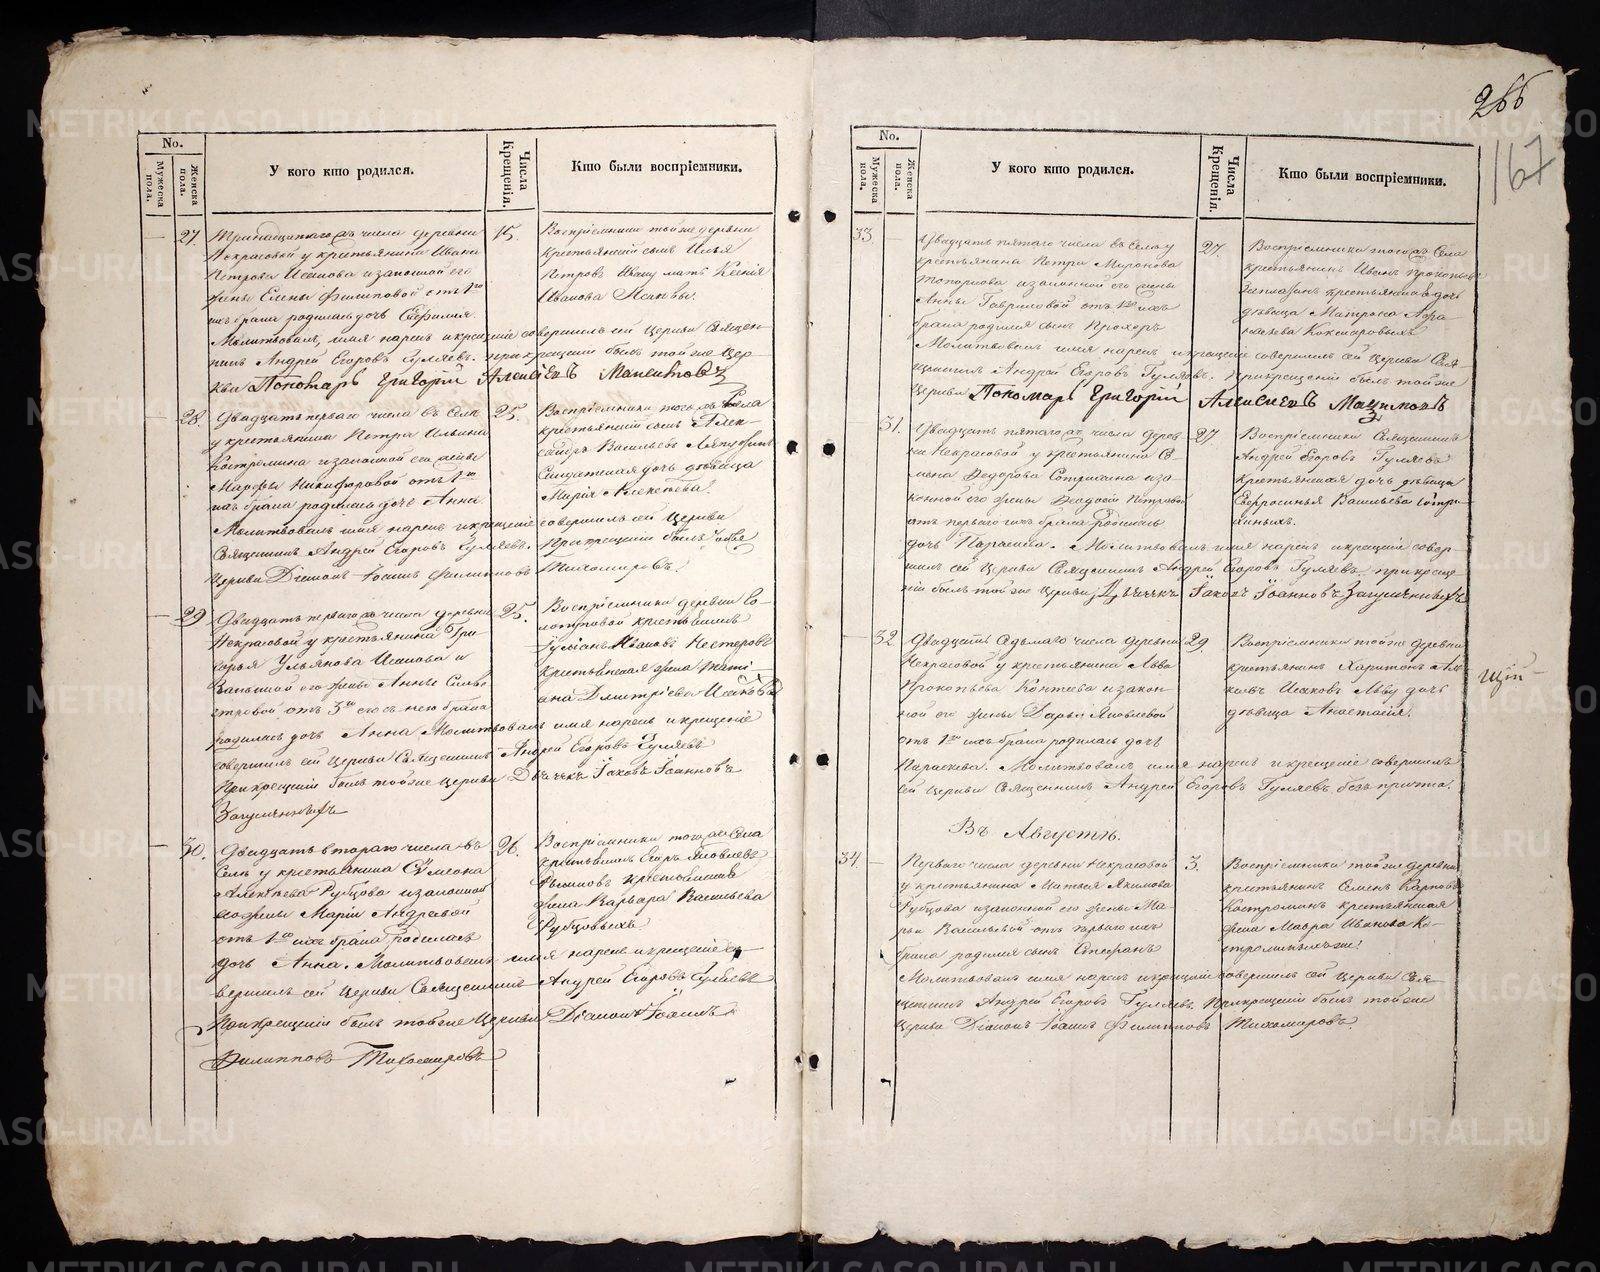 266
167
No.
Мужеска пола.
Женска пола.
У кого кто родился.
Числа Крещенія.
Кто были воспріемники.
27.
Тринадцатагожъ числа деревни
Некрасовой у крестьянина Ивана
Петрова Исакова и законной его
жены Елены Филиповой отъ 1го
ихъ брака родилась дочь
Молитвовалъ, имя нарекъ и крещеніе совершилъ сей Церкви Священ-
никъ Андрей Егоровъ Гуляевъ. при крещеніи былъ тойже Цер-
кви Пономарь Григорій Алексіевъ
15.
Воспріемники тойже деревни
крестьянскій сынъ Илья
Петровъ мать Ксенія
Иванова
28.
Двадцать перваго числа въ Селѣ
у крестьянина Петра Ильина
Костромина и законной его жены
Марфы Никифоровой отъ 1го
ихъ брака родилась дочь Анна
Молитвовалъ имя нарекъ и крещеніе совершилъ сей Церкви
Священникъ Андрей Егоровъ Гуляевъ. При крещеніи былъ тойже
Церкви Діаконъ Іоаннъ Филипповъ Тихомировъ.
25.
Воспріемники тогожъ Села
крестьянскій сынъ Алек-
сандръ Васильевъ
дочь дѣвица
Марія Алексѣева
29
Двадцать перваго жъ числа деревни
Некрасовой у крестьянина Гри-
горья Ульянова Исакова и
законной его жены Анны Силве-
стровой отъ 3го его съ нею брака
родилась дочь Анна Молитвовалъ имя нарекъ и крещеніе
совершилъ сей Церкви Священникъ Андрей Егоровъ Гуляевъ
При крещеніи былъ тойже церкви Дьячекъ Іаковъ Іоанновъ
25.
Воспріемники деревни
крестьянинъ
Ивановъ Нестеровъ
крестьянская жена Тати-
яна Дмитріева Исакова
30.
Двадцать втораго числа въ
Селѣ у крестьянина Сѵмеона
Алексѣева Рубцова и законной
его жены Маріи Андреевой
отъ 1го ихъ брака родилась
дочь Анна. Молитвовалъ имя нарекъ и крещеніе со-
вершилъ сей Церкви Священникъ Андрей Егоровъ Гуляевъ
При крещеніи былъ тойже Церкви Діаконъ Іоаннъ
Филипповъ Тихомировъ
26.
Воспріемники тогожъ Села
крестьянинъ Егоръ Яковлевъ
крестьянская
жена Варвара Васильева
Рубцовыхъ
No.
Мужеска пола.
Женска пола.
У кого кто родился.
Числа Крещенія.
Кто были воспріемники.
33
Двадцать пятаго числа въ Селѣ у
крестьянина Петра Миронова
Топоркова и законной его жены
Анны Гавриловой отъ 1го ихъ
брака родился сынъ Прохоръ
Молитвовалъ имя нарекъ и крещеніе совершилъ сей Церкви Свя-
щенникъ Андрей Егоровъ Гуляевъ. При крещеніи былъ тойже
Церкви Пономарь Григорій Алексіевъ
27.
Воспріемники тогожъ Села
крестьянинъ Иванъ Прокопьевъ
крестьянская дочь
дѣвица Матрона Афа-
насьева Кокшаровыхъ
31.
Двадцать пятагожъ числа дерев-
ни Некрасовой у крестьянина Се-
мена Федорова и за-
конной его жены Феодосіи Петровой
отъ перваго ихъ брака родилась
дочь Параскева. Молитвовалъ имя нарекъ и крещеніе совер-
шилъ сей Церкви Священникъ Андрей Егоровъ Гуляевъ при креще-
ніи былъ тойже Церкви Дьячекъ Іаковъ Іоанновъ
27
Воспріемники Священникъ
Андрей Егоровъ Гуляевъ
крестьянская дочь дѣвица
Евфросинья Васильева
32
Двадцать Седьмаго числа деревни
Некрасовой у крестьянина Льва
Прокопьева Коптева и закон-
ной его жены Дарьи Яковлевой
отъ 1го ихъ брака родилась дочь
Параскева. Молитвовалъ имя нарекъ и крещеніе совершилъ
сей Церкви Священникъ Андрей Егоровъ Гуляевъ безъ причта.
29
Воспріемники тойже деревни
крестьянинъ Харитонъ
Исаковъ Льву дочь
дѣвица Анастасія.
Въ Августѣ.
34
Перваго числа деревни Некрасовой
у крестьянина Матвея Якимова
Рубцова и законной его жены Ма-
рьи Васильевой отъ перваго ихъ
брака родился сынъ Стефанъ
Молитвовалъ имя нарекъ и крещеніе совершилъ сей Церкви Свя-
щенникъ Андрей Егоровъ Гуляевъ. При крещеніи былъ тойже
Церкви Діаконъ Іоаннъ Филипповъ Тихомировъ.
3.
Воспріемники тойже деревни
крестьянинъ Семенъ Карповъ
Костроминъ крестьянская
жена Мавра Иванова Ко-
METRIKI.GASO-URAL.RU